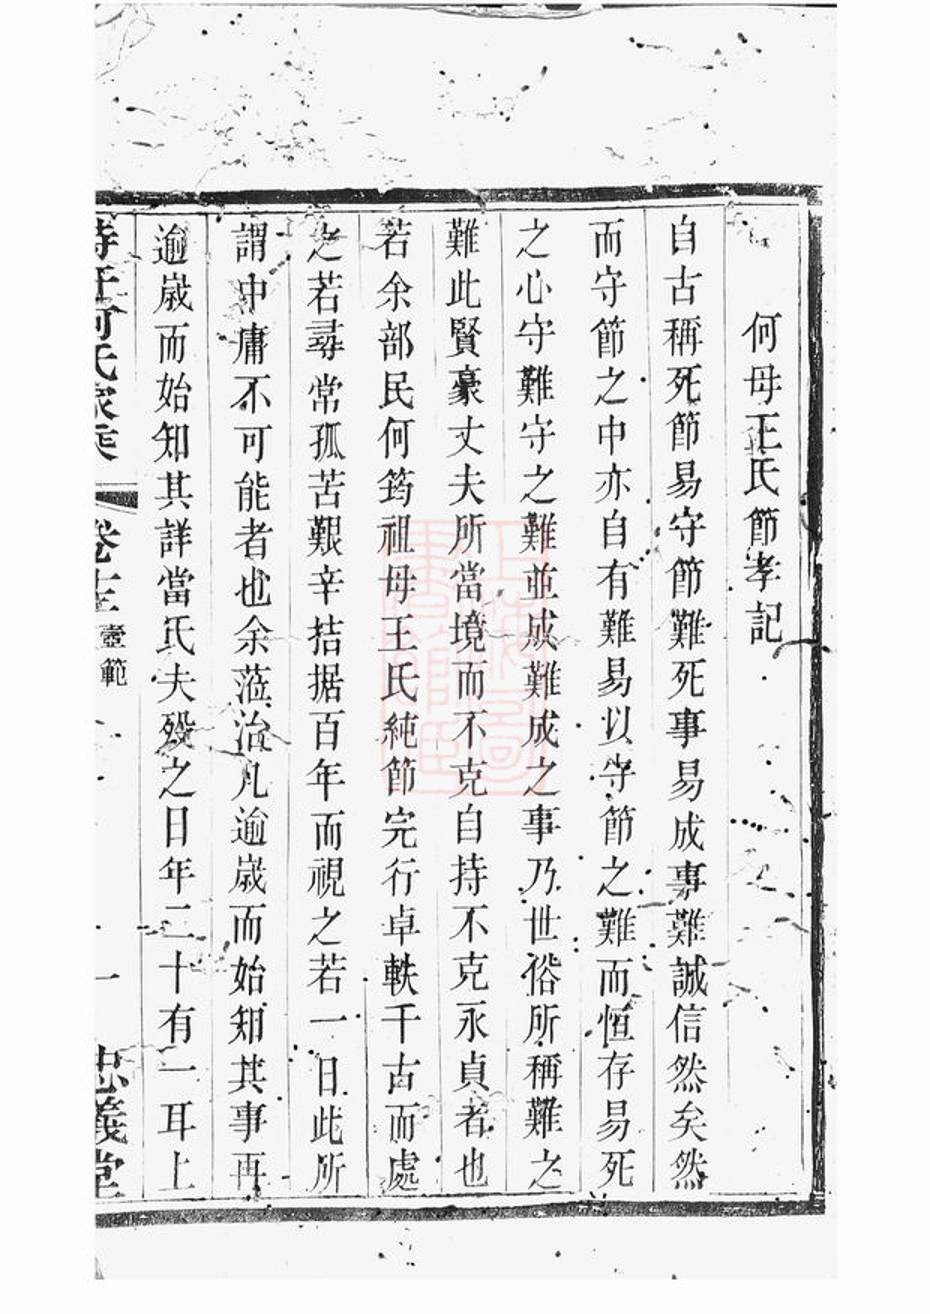 何母王氏節孝記
自古稱死節易守節難死事易成事難誠信然矣然
而守節之中亦自有難易以守節之難而恒存易死
之心守難守之難並成難成之事乃世俗所稱難之
難此賢豪丈夫所當境而不克自持不克永貞者也
若余部民何筠祖母王氏純節完行卓軼千古而處
之若尋常孤苦艱辛拮据百年而視之若一日此所
謂中庸不可能者也余蒞治凡逾歲而始知其事再
逾歲而始知其詳當氏夫歿之日年二十有一耳上
何氏家乘
卷十三
壼範
一
忠義堂